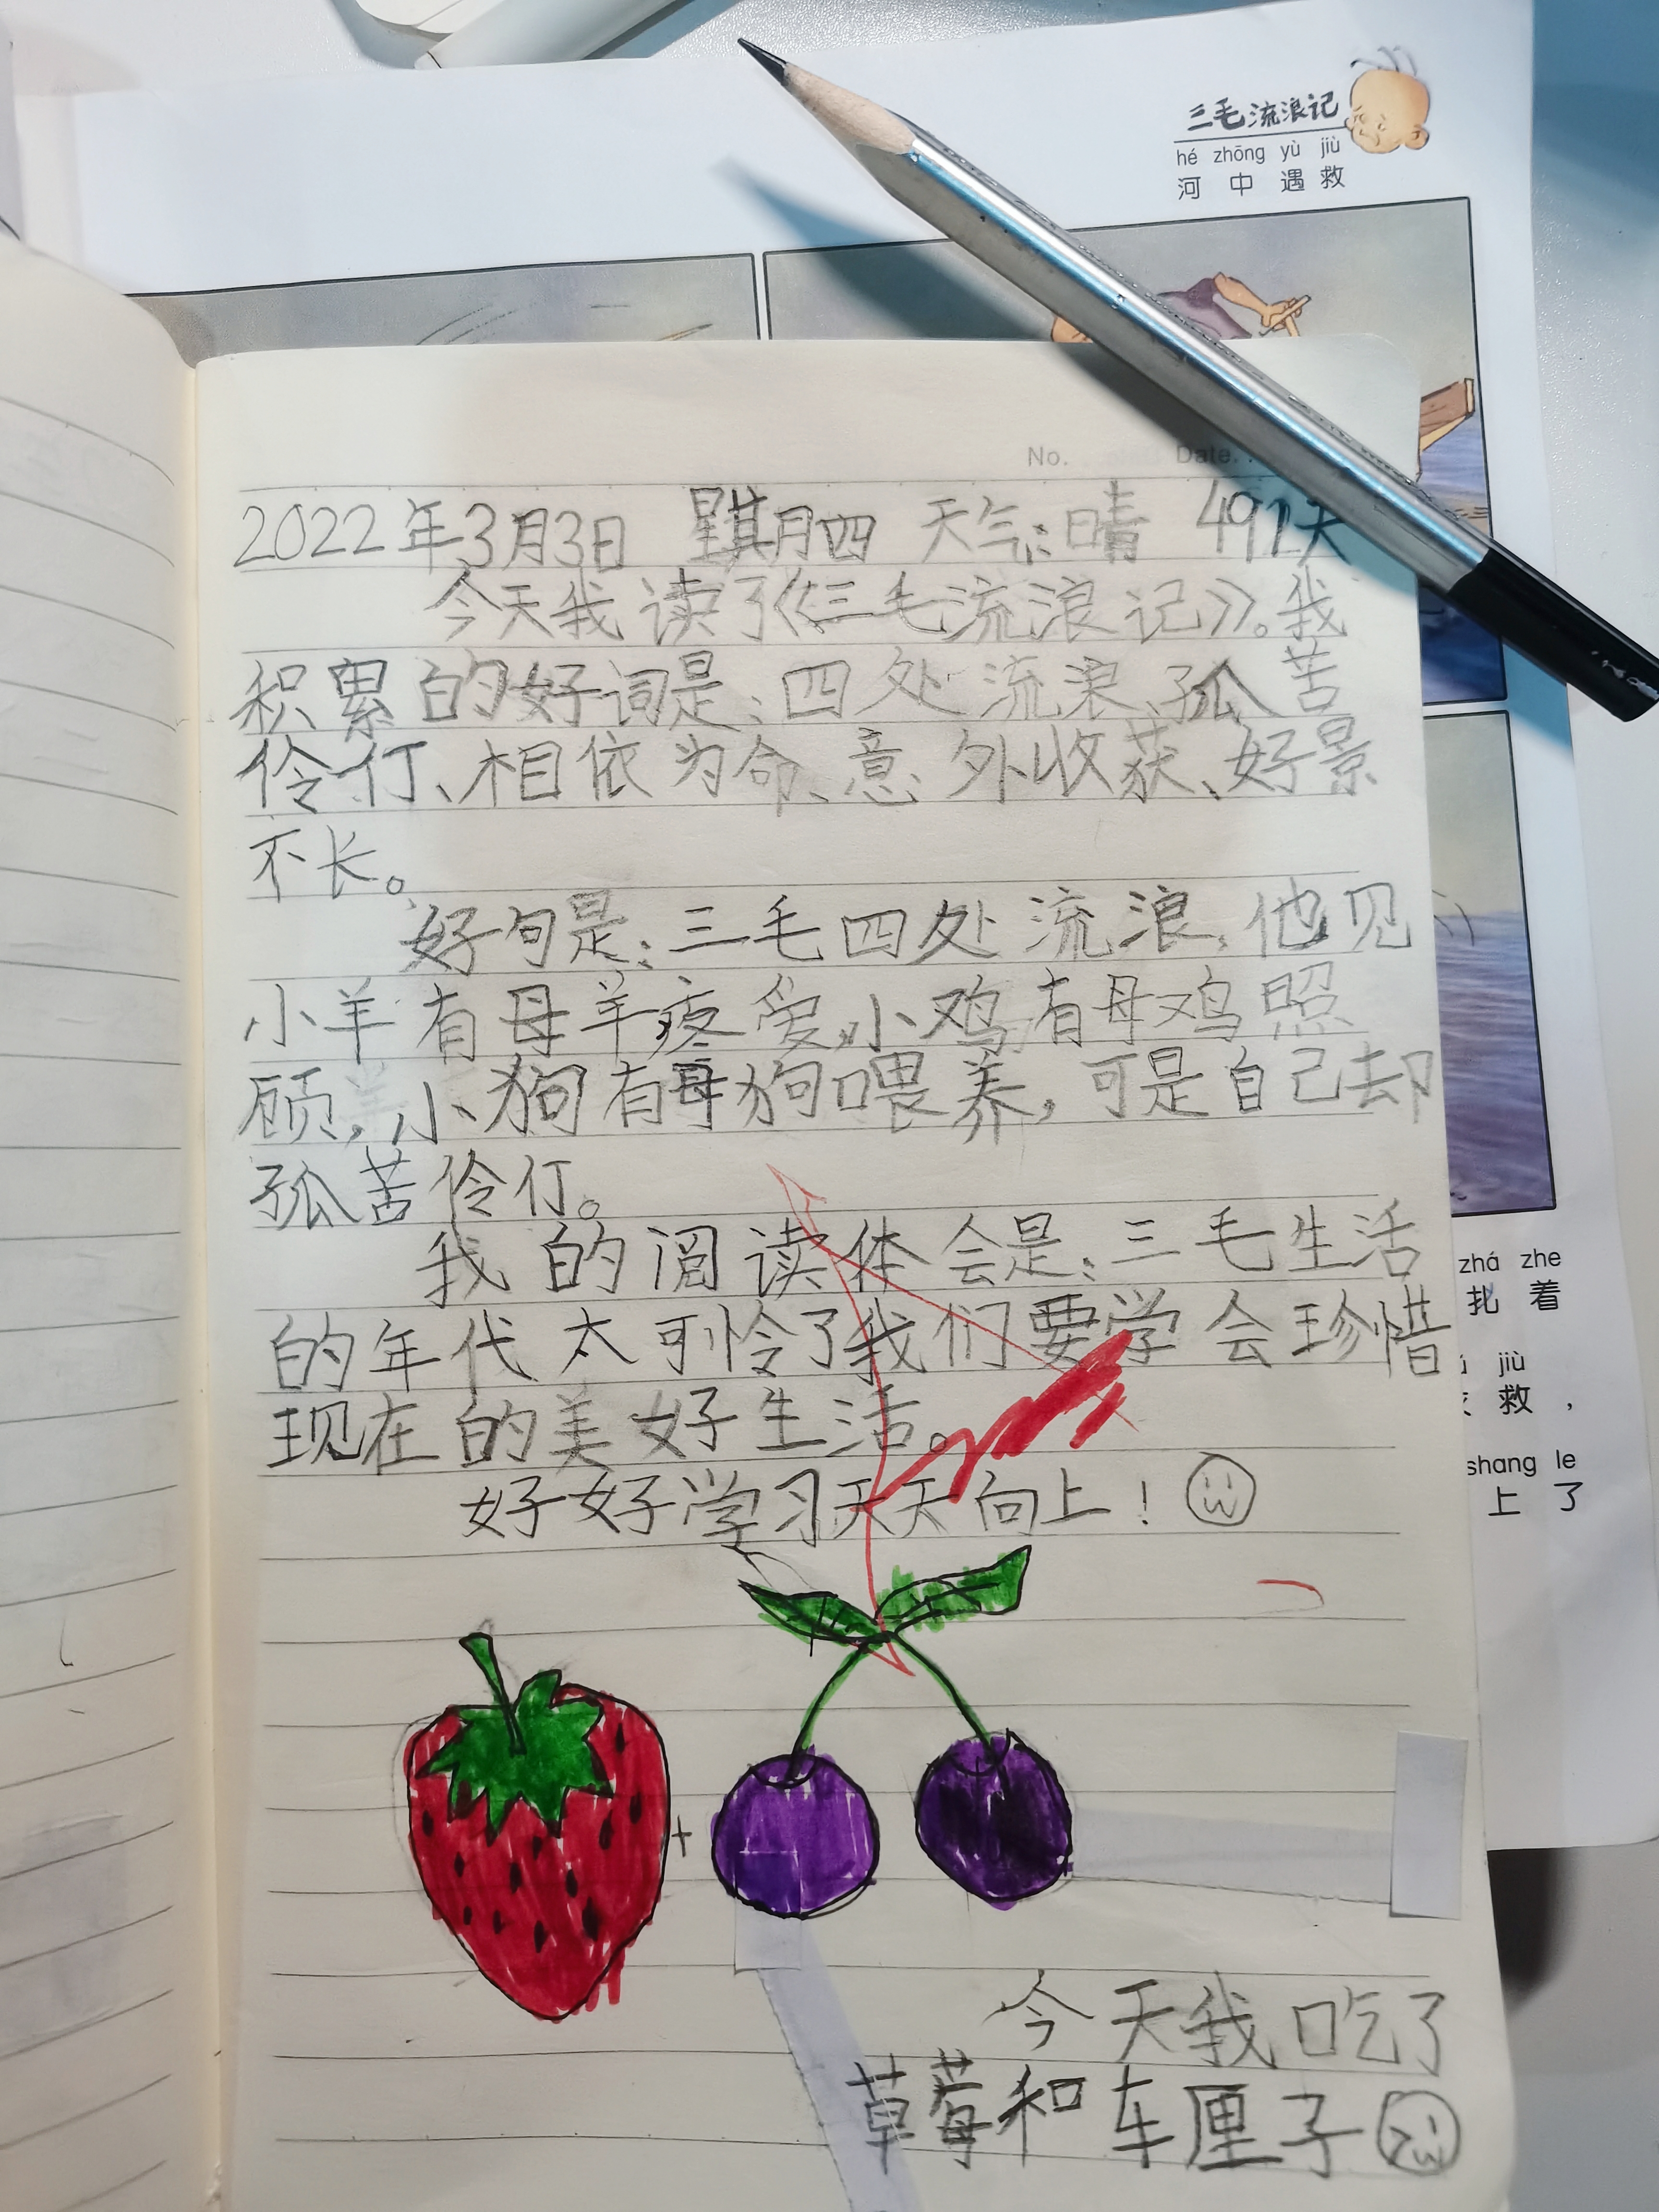 三毛流浪记
hé zhōng yù jiù
河中遇救
No.
Date.
2022年3月3日 星期四 天气:晴 491天
今天我读了《三毛流浪记》。我
积累的好词是:四处流浪、孤苦
伶仃、相依为命、意外收获、好景
不长。
好句是:三毛四处流浪,他见
小羊有母羊疼爱,小鸡有母鸡照
顾,小狗有母狗喂养,可是自己却
孤苦伶仃。
我的阅读体会是:三毛生活
的年代太可怜了我们要学会珍惜
现在的美好生活。
好好学习天天向上!
+
今天我吃了
草莓和车厘子
zhá zhe
扎着
jiù
救,
shang le
上了